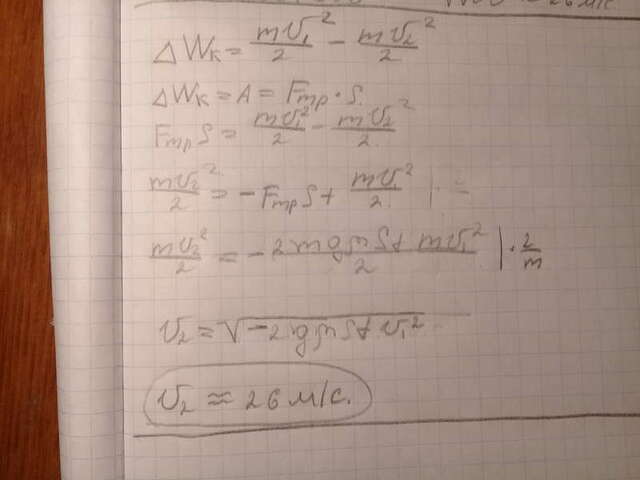 ΔWₖ = mv₁²/2 − mv₂²/2
ΔWₖ = A = Fтр · S
Fтр S = mv₁²/2 − mv₂²/2
mv₂²/2 = −Fтр S + mv₁²/2
mv₂²/2 = (−2mgμS + mv₁²)/2 | · 2/m
v₂ = √−2gμS + v₁²
v₂ ≈ 26 м/с.